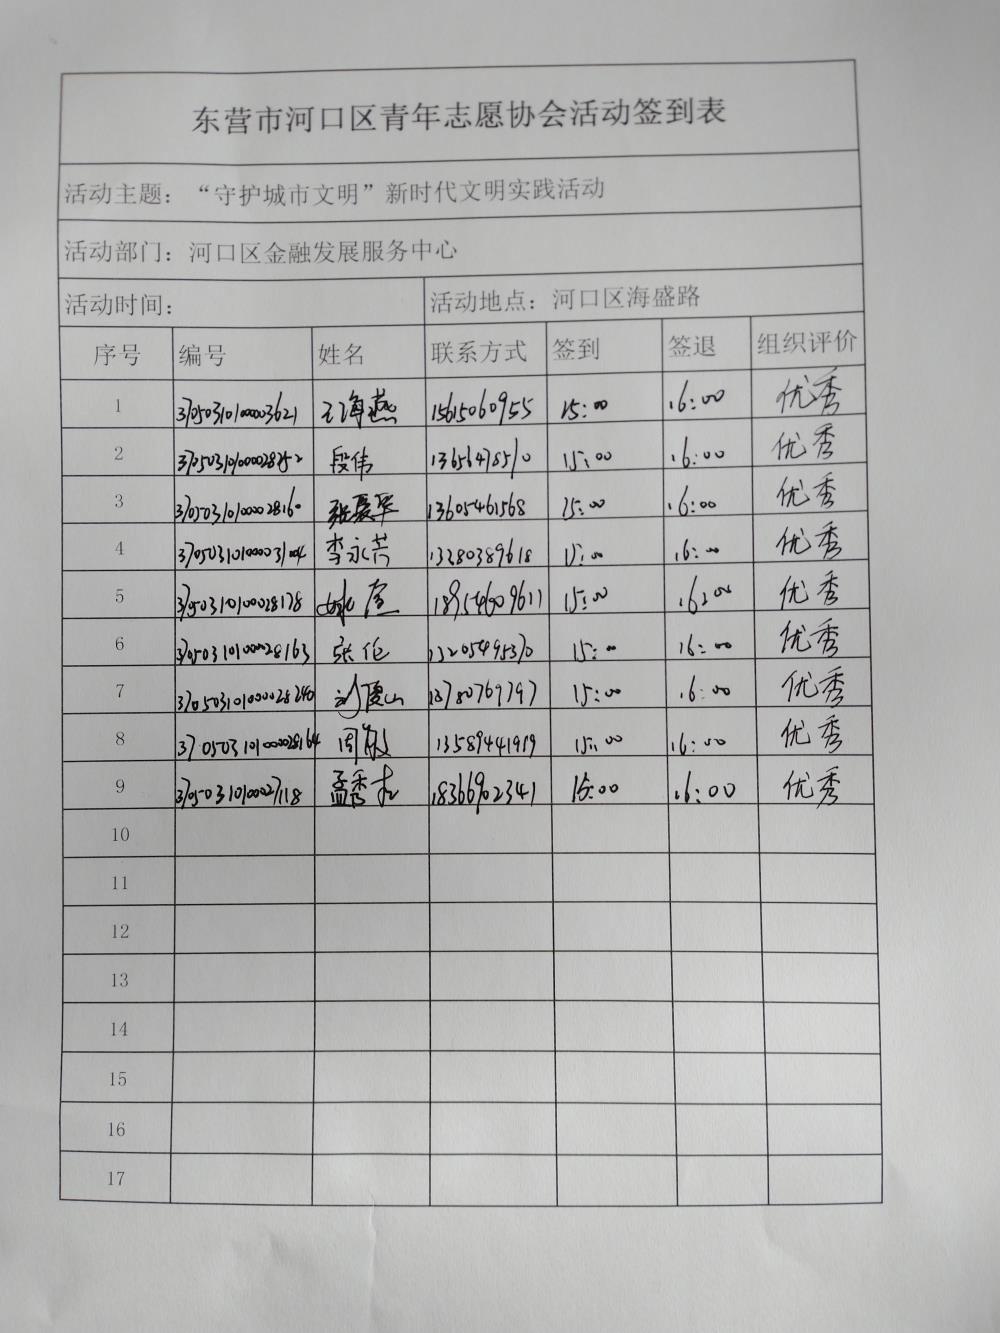 东营市河口区青年志愿协会活动签到表
活动主题：“守护城市文明”新时代文明实践活动
活动部门：河口区金融发展服务中心
活动时间： 活动地点：河口区海盛路
序号 编号 姓名 联系方式 签到 签退 组织评价
1 37050310100003621 王海燕 15615060955 15:00 16:00 优秀
2 段伟 13656478510 15:00 16:00 优秀
3 370503101000028160 13605461568 15:00 16:00 优秀
4 李永芳 13280389618 15:00 16:00 优秀
5 37050310100028178 18954609611 15:00 16:00 优秀
6 37050310100028163 张伦 13205495370 15:00 16:00 优秀
7 37050310100028240 13780769797 15:00 16:00 优秀
8 37050310100028164 周敏 13589441919 15:00 16:00 优秀
9 37050310100027118 孟秀 18366902341 15:00 16:00 优秀
10
11
12
13
14
15
16
17